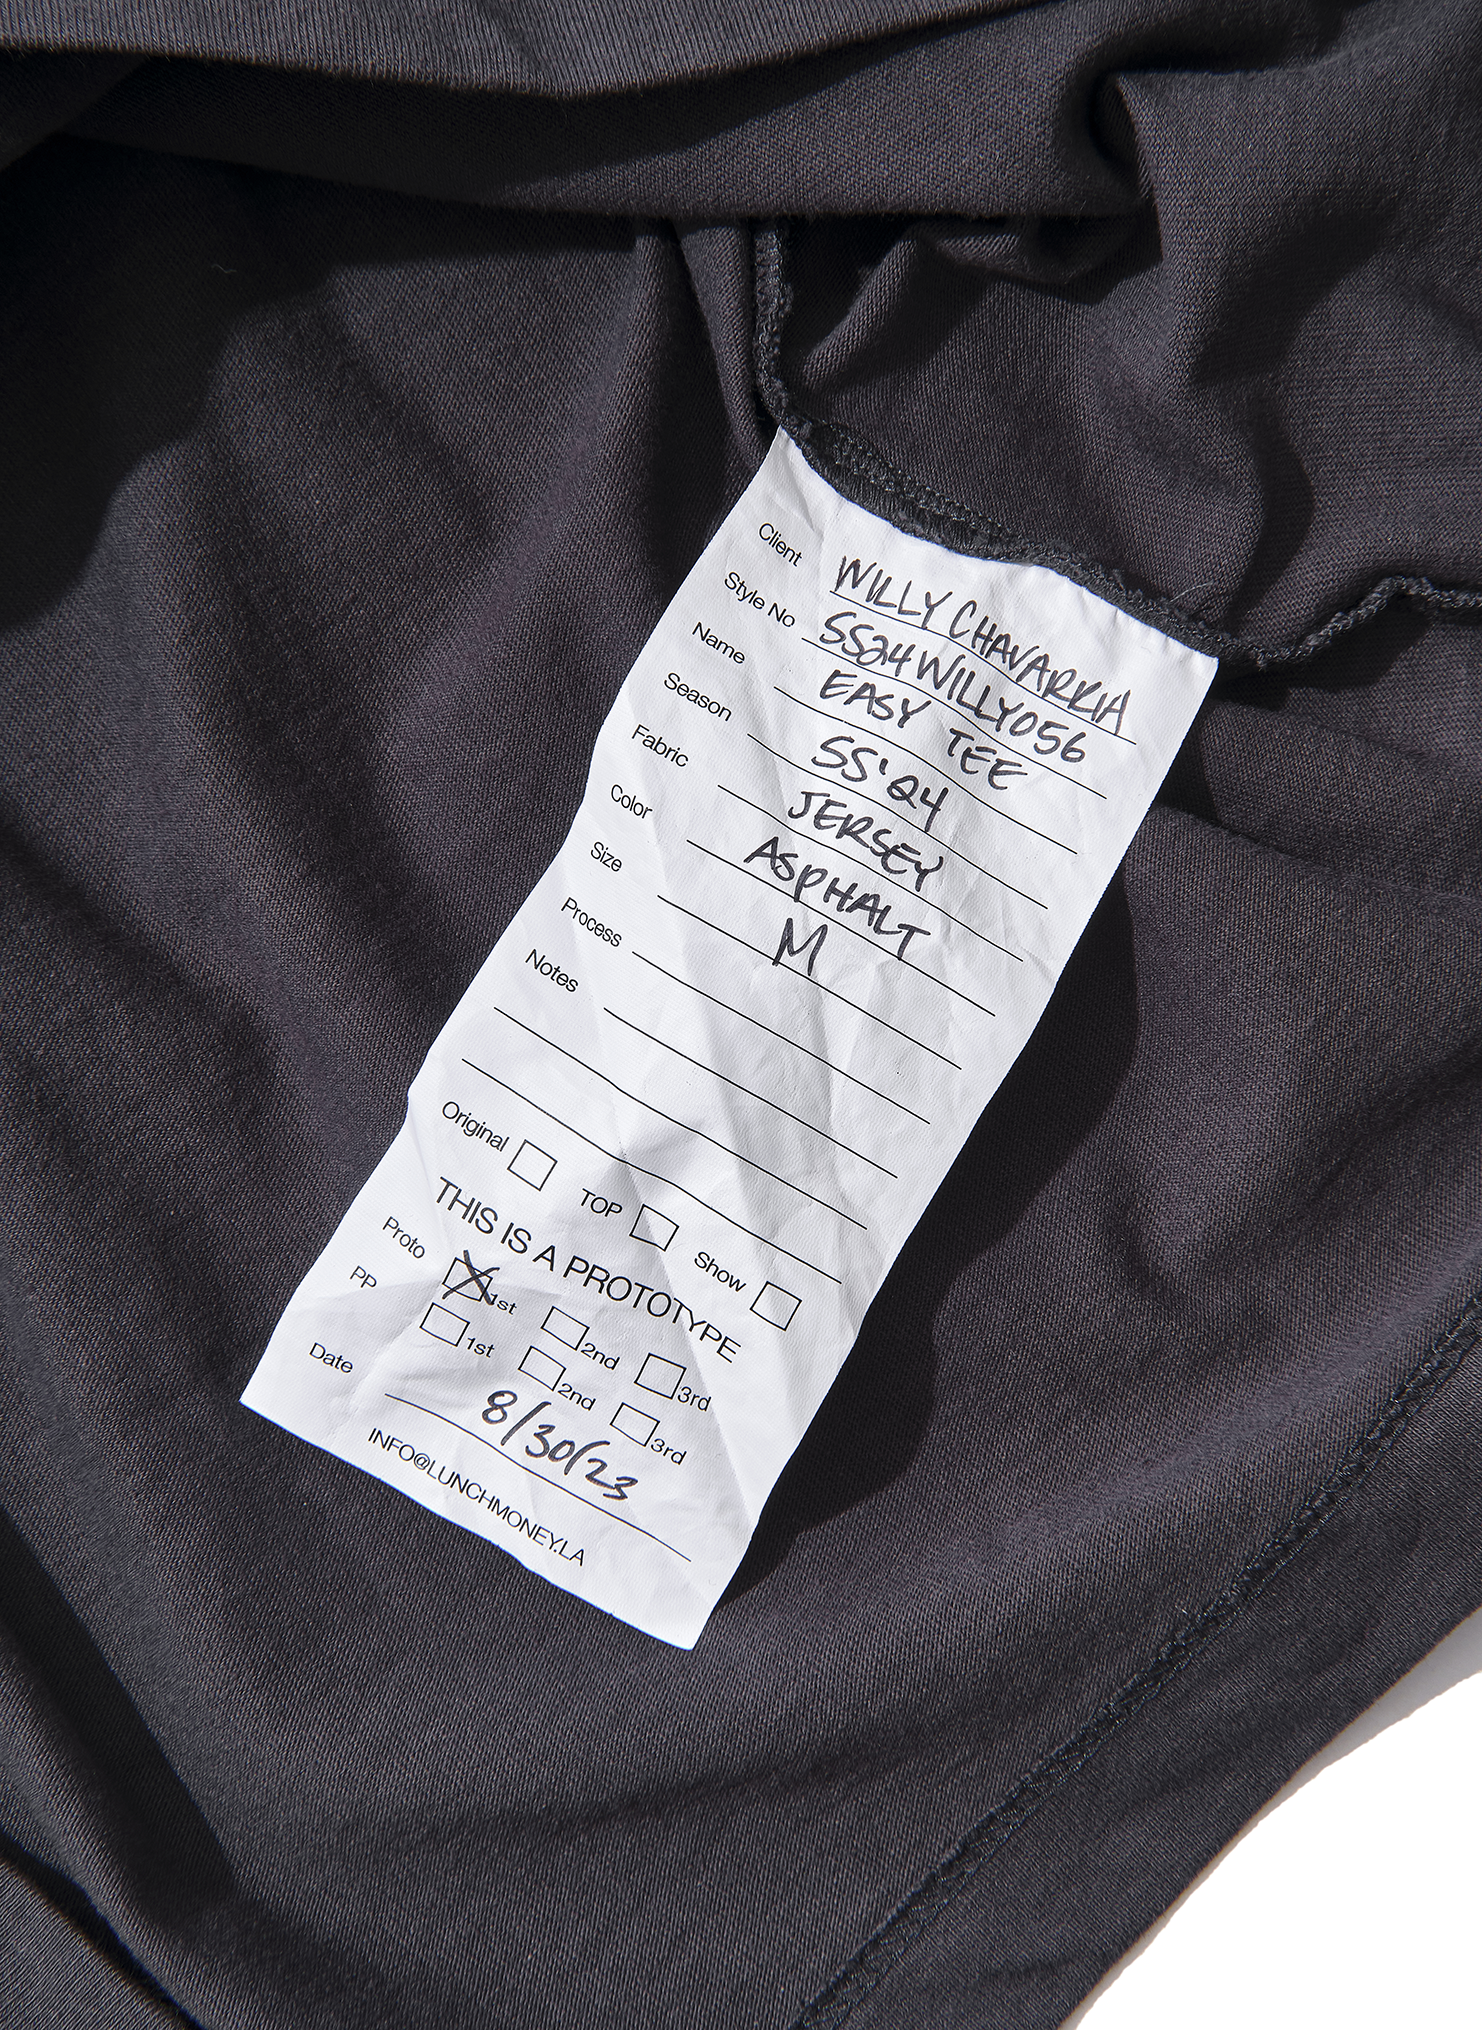 Client WILLY CHAVARRIA
Style No SS24WILLY056
Name EASY TEE
Season SS'24
Fabric JERSEY
Color ASPHALT
Size M
Process
Notes
Original TOP Show
THIS IS A PROTOTYPE
Proto X 1st 2nd 3rd
PP 1st 2nd 3rd
Date 8/30/23
INFO@LUNCHMONEY.LA